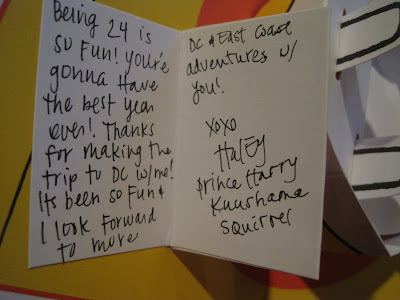 Being 24 is
so Fun! you're
gonna Have
the best year
ever! Thanks
for making the
trip to DC w/me!
Its been so Fun &
I look Forward
to more
DC & East Coast
adventures w/
you!
xoxo
Haley
Prince Harry
Kuushama
Squirrel